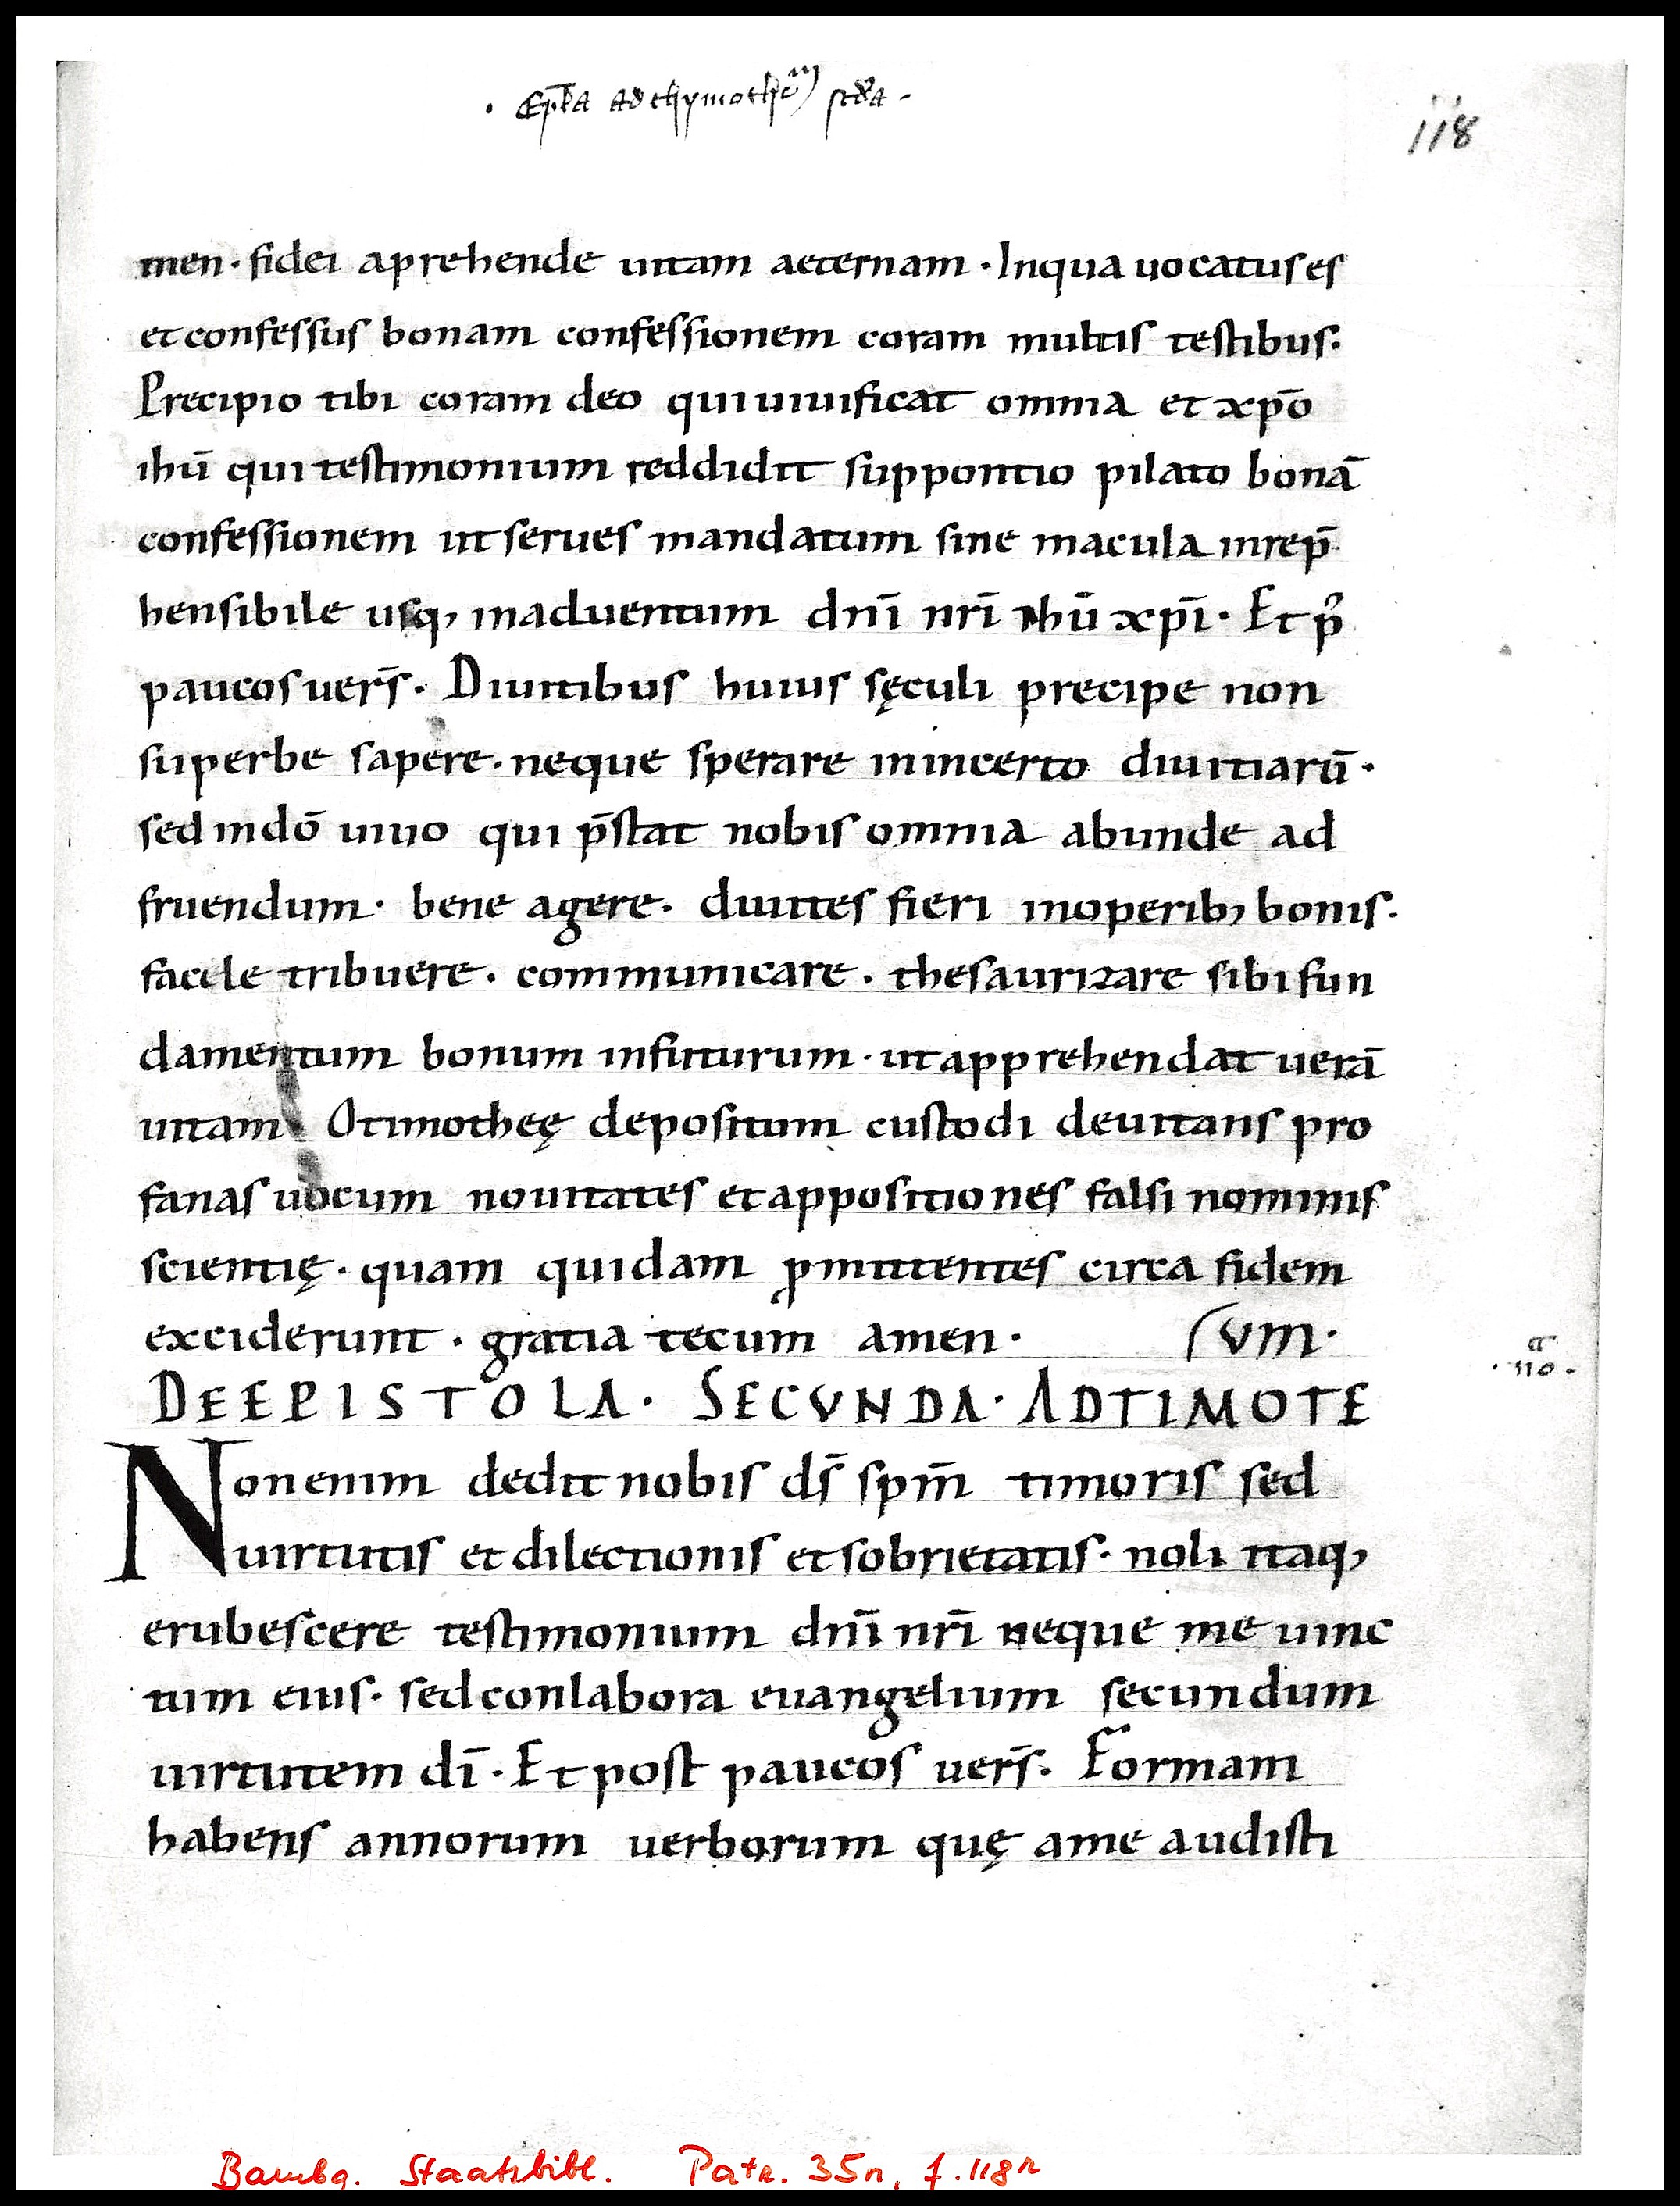 · Epl̄a ad thymotheū scd̄a ·
118
men · fidei aprehende uitam aeternam · Inqua uocatus es
et confessus bonam confessionem coram multis testibus.
Precipio tibi coram deo qui uiuificat omnia et xp̄o
ihū qui testimonium reddidit suppontio pilato bonā
confessionem ut serues mandatum sine macula inrep̄
hensibile usq, inaduentum dnī nrī ihū xpī · Et p̄
paucos uers̄. Diuitibus huius sęculi precipe non
superbe sapere · neque sperare inincerto diuitiarū ·
sed indō uiuo qui p̄stat nobis omnia abunde ad
fruendum · bene agere · diuites fieri inoperib, bonis ·
facile tribuere · communicare · thesaurizare sibi fun
damentum bonum infiturum · ut apprehendat uerā
uitam Otimotheę depositum custodi deuitans pro
fanas uocum nouitates et appositiones falsi nominis
scientię · quam quidam ꝓmittentes circa fidem
exciderunt · gratia tecum amen · (vm·
DE EPISTOLA · SECVNDA · AD TIMOTE
a
· no ·
Non enim dedit nobis ds̄ spm̄ timoris sed
uirtutis et dilectionis et sobrietatis · noli itaq,
erubescere testimonium dnī nrī neque me uinc
tum eius · sed conlabora euangelium secundum
uirtutem dī · Et post paucos uers̄. Formam
habens annorum uerborum quę ame audisti
Bambg. Staatsbibl. Patr. 35n, f. 118r